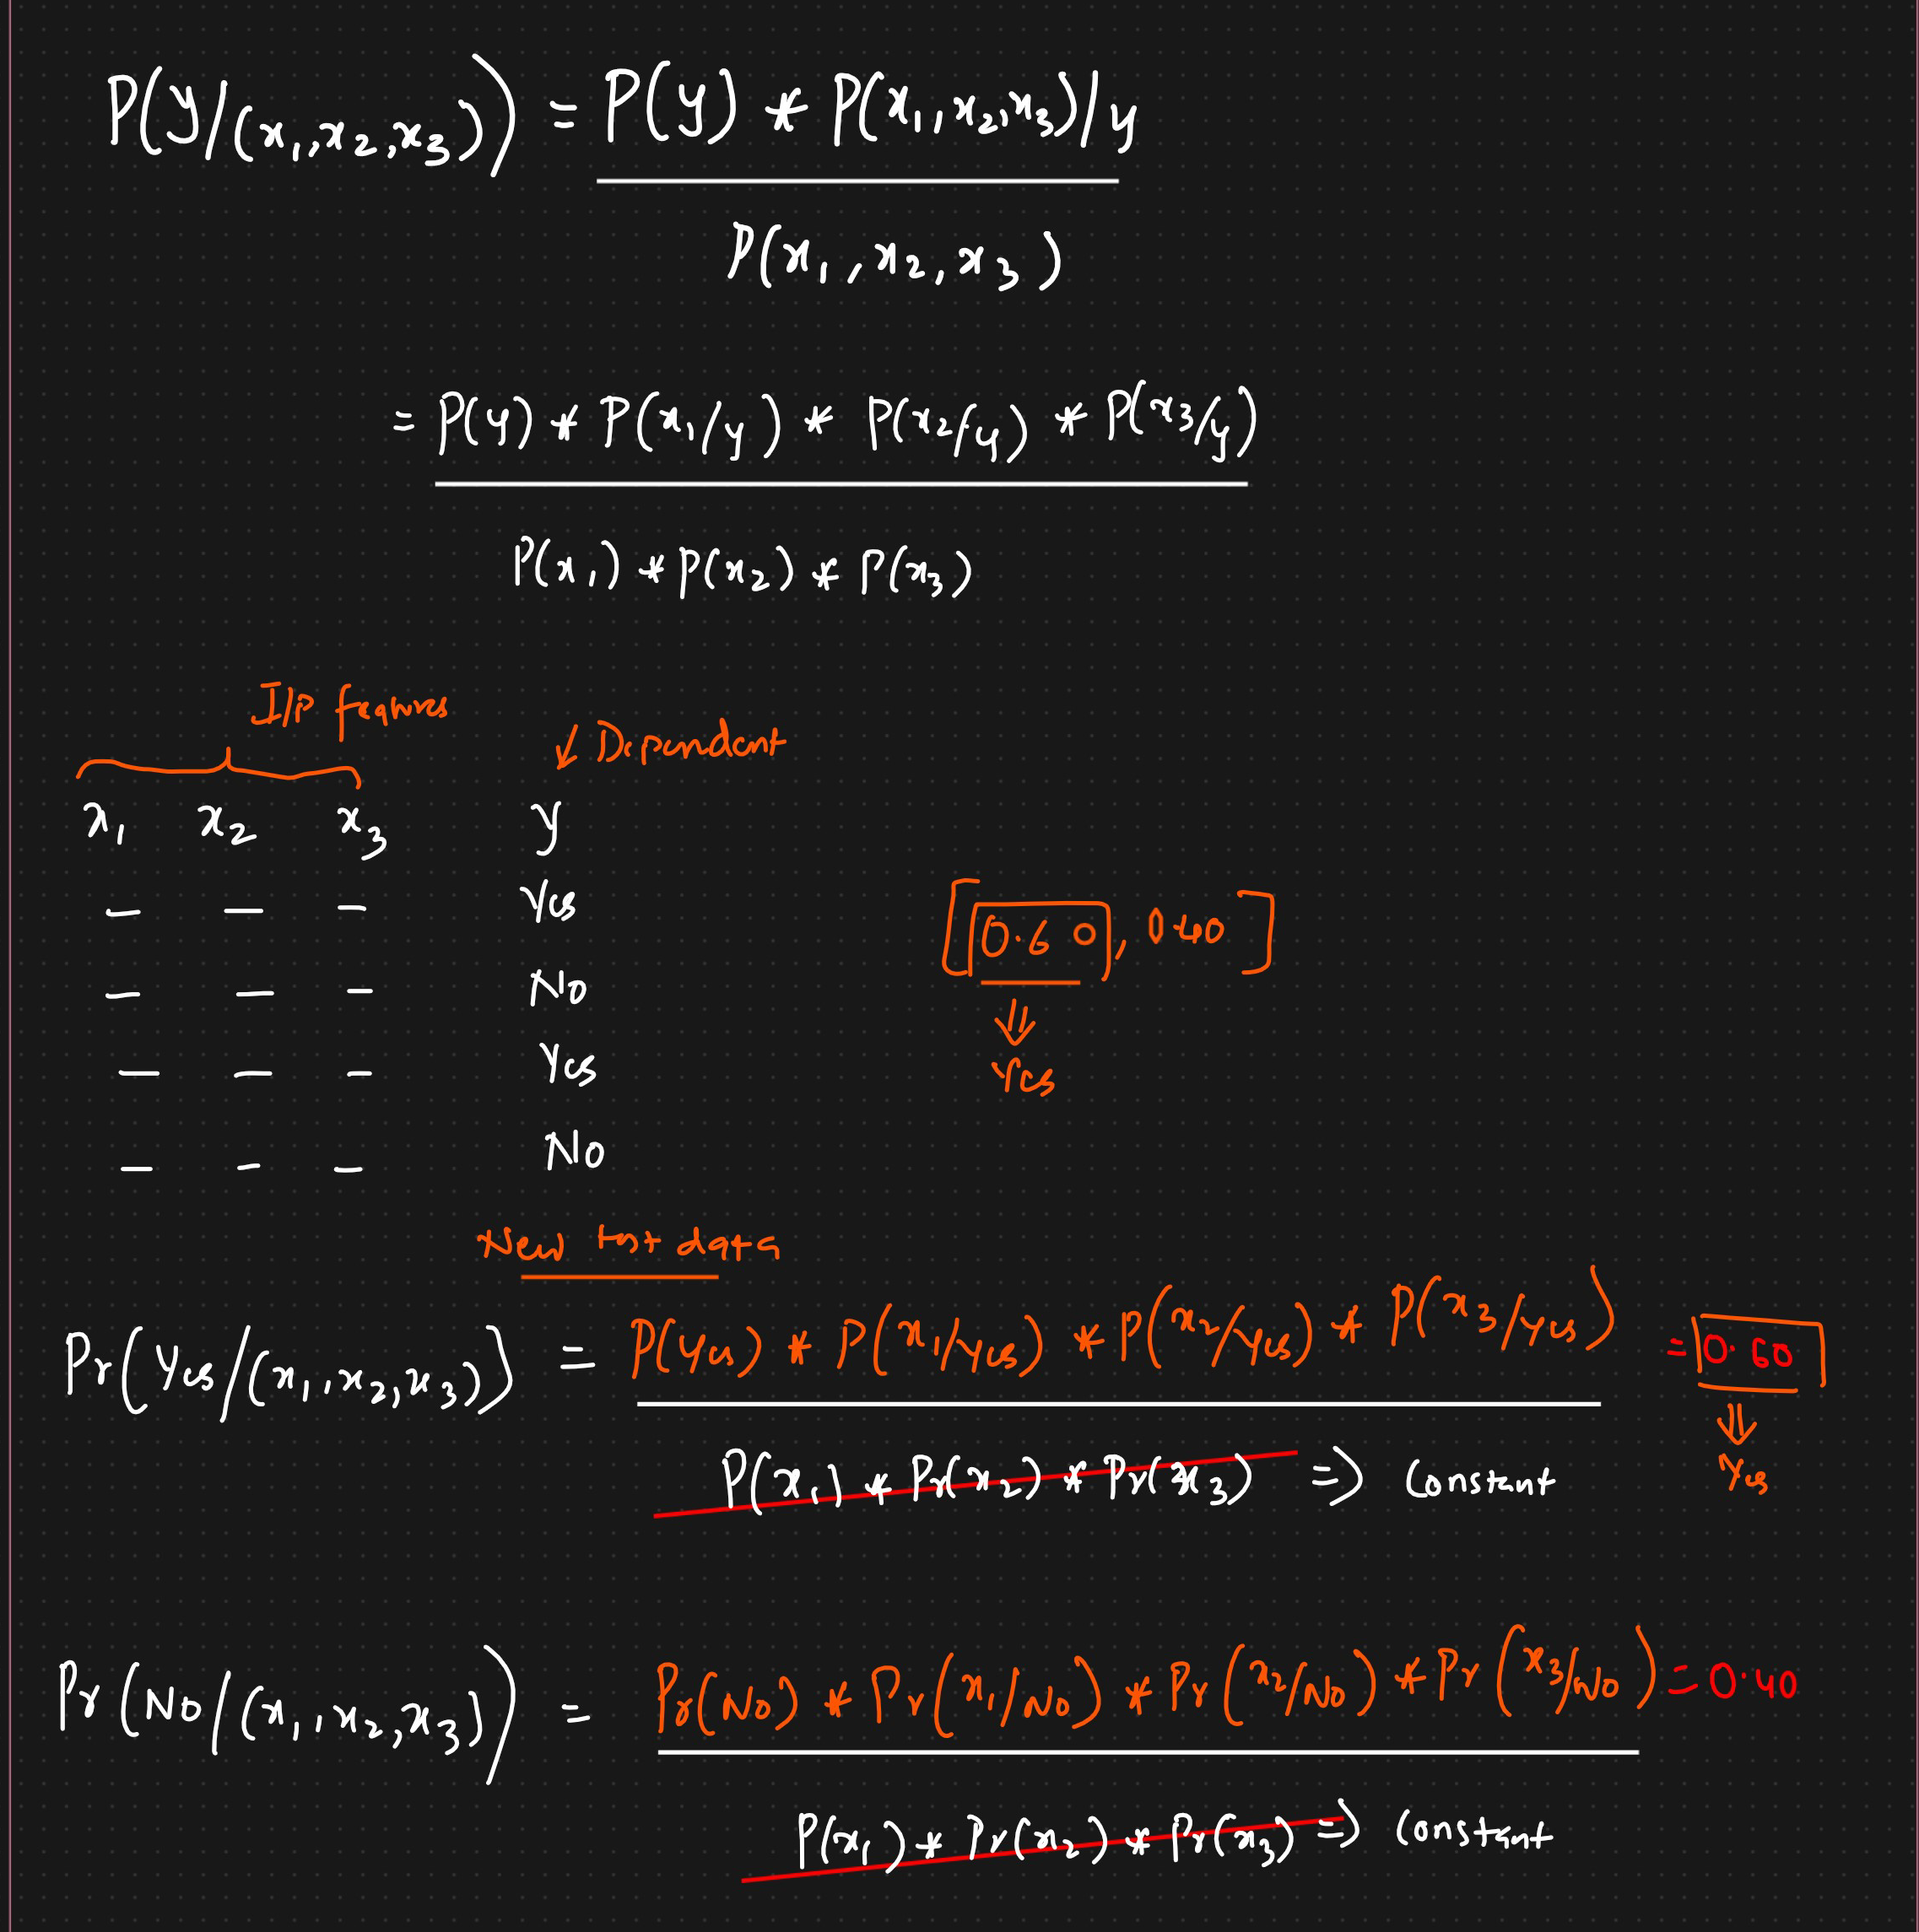 P(y/(x₁,x₂,x₃)) = P(y) * P(x₁,x₂,x₃)/y
P(x₁,,x₂,x₃)
= P(y) * P(x₁/y) * P(x₂/y) * P(x₃/y)
P(x₁) * P(x₂) * P(x₃)
I/P features
↓ Dependent
x₁ x₂ x₃ y
— — — Yes
— — — No
— — — Yes
— — — No
[0.60, 0.40]
⇓
Yes
New test data
Pr(Yes/(x₁,x₂,x₃)) = P(Yes) * P(x₁/yes) * P(x₂/yes) * P(x₃/yes) = 0.60
P(x₁) * Pr(x₂) * Pr(x₃) => Constant
⇓
Yes
Pr(No/(x₁,x₂,x₃)) = Pr(No) * Pr(x₁/No) * Pr(x₂/No) * Pr(x₃/No) = 0.40
P(x₁) * Pr(x₂) * Pr(x₃) => Constant